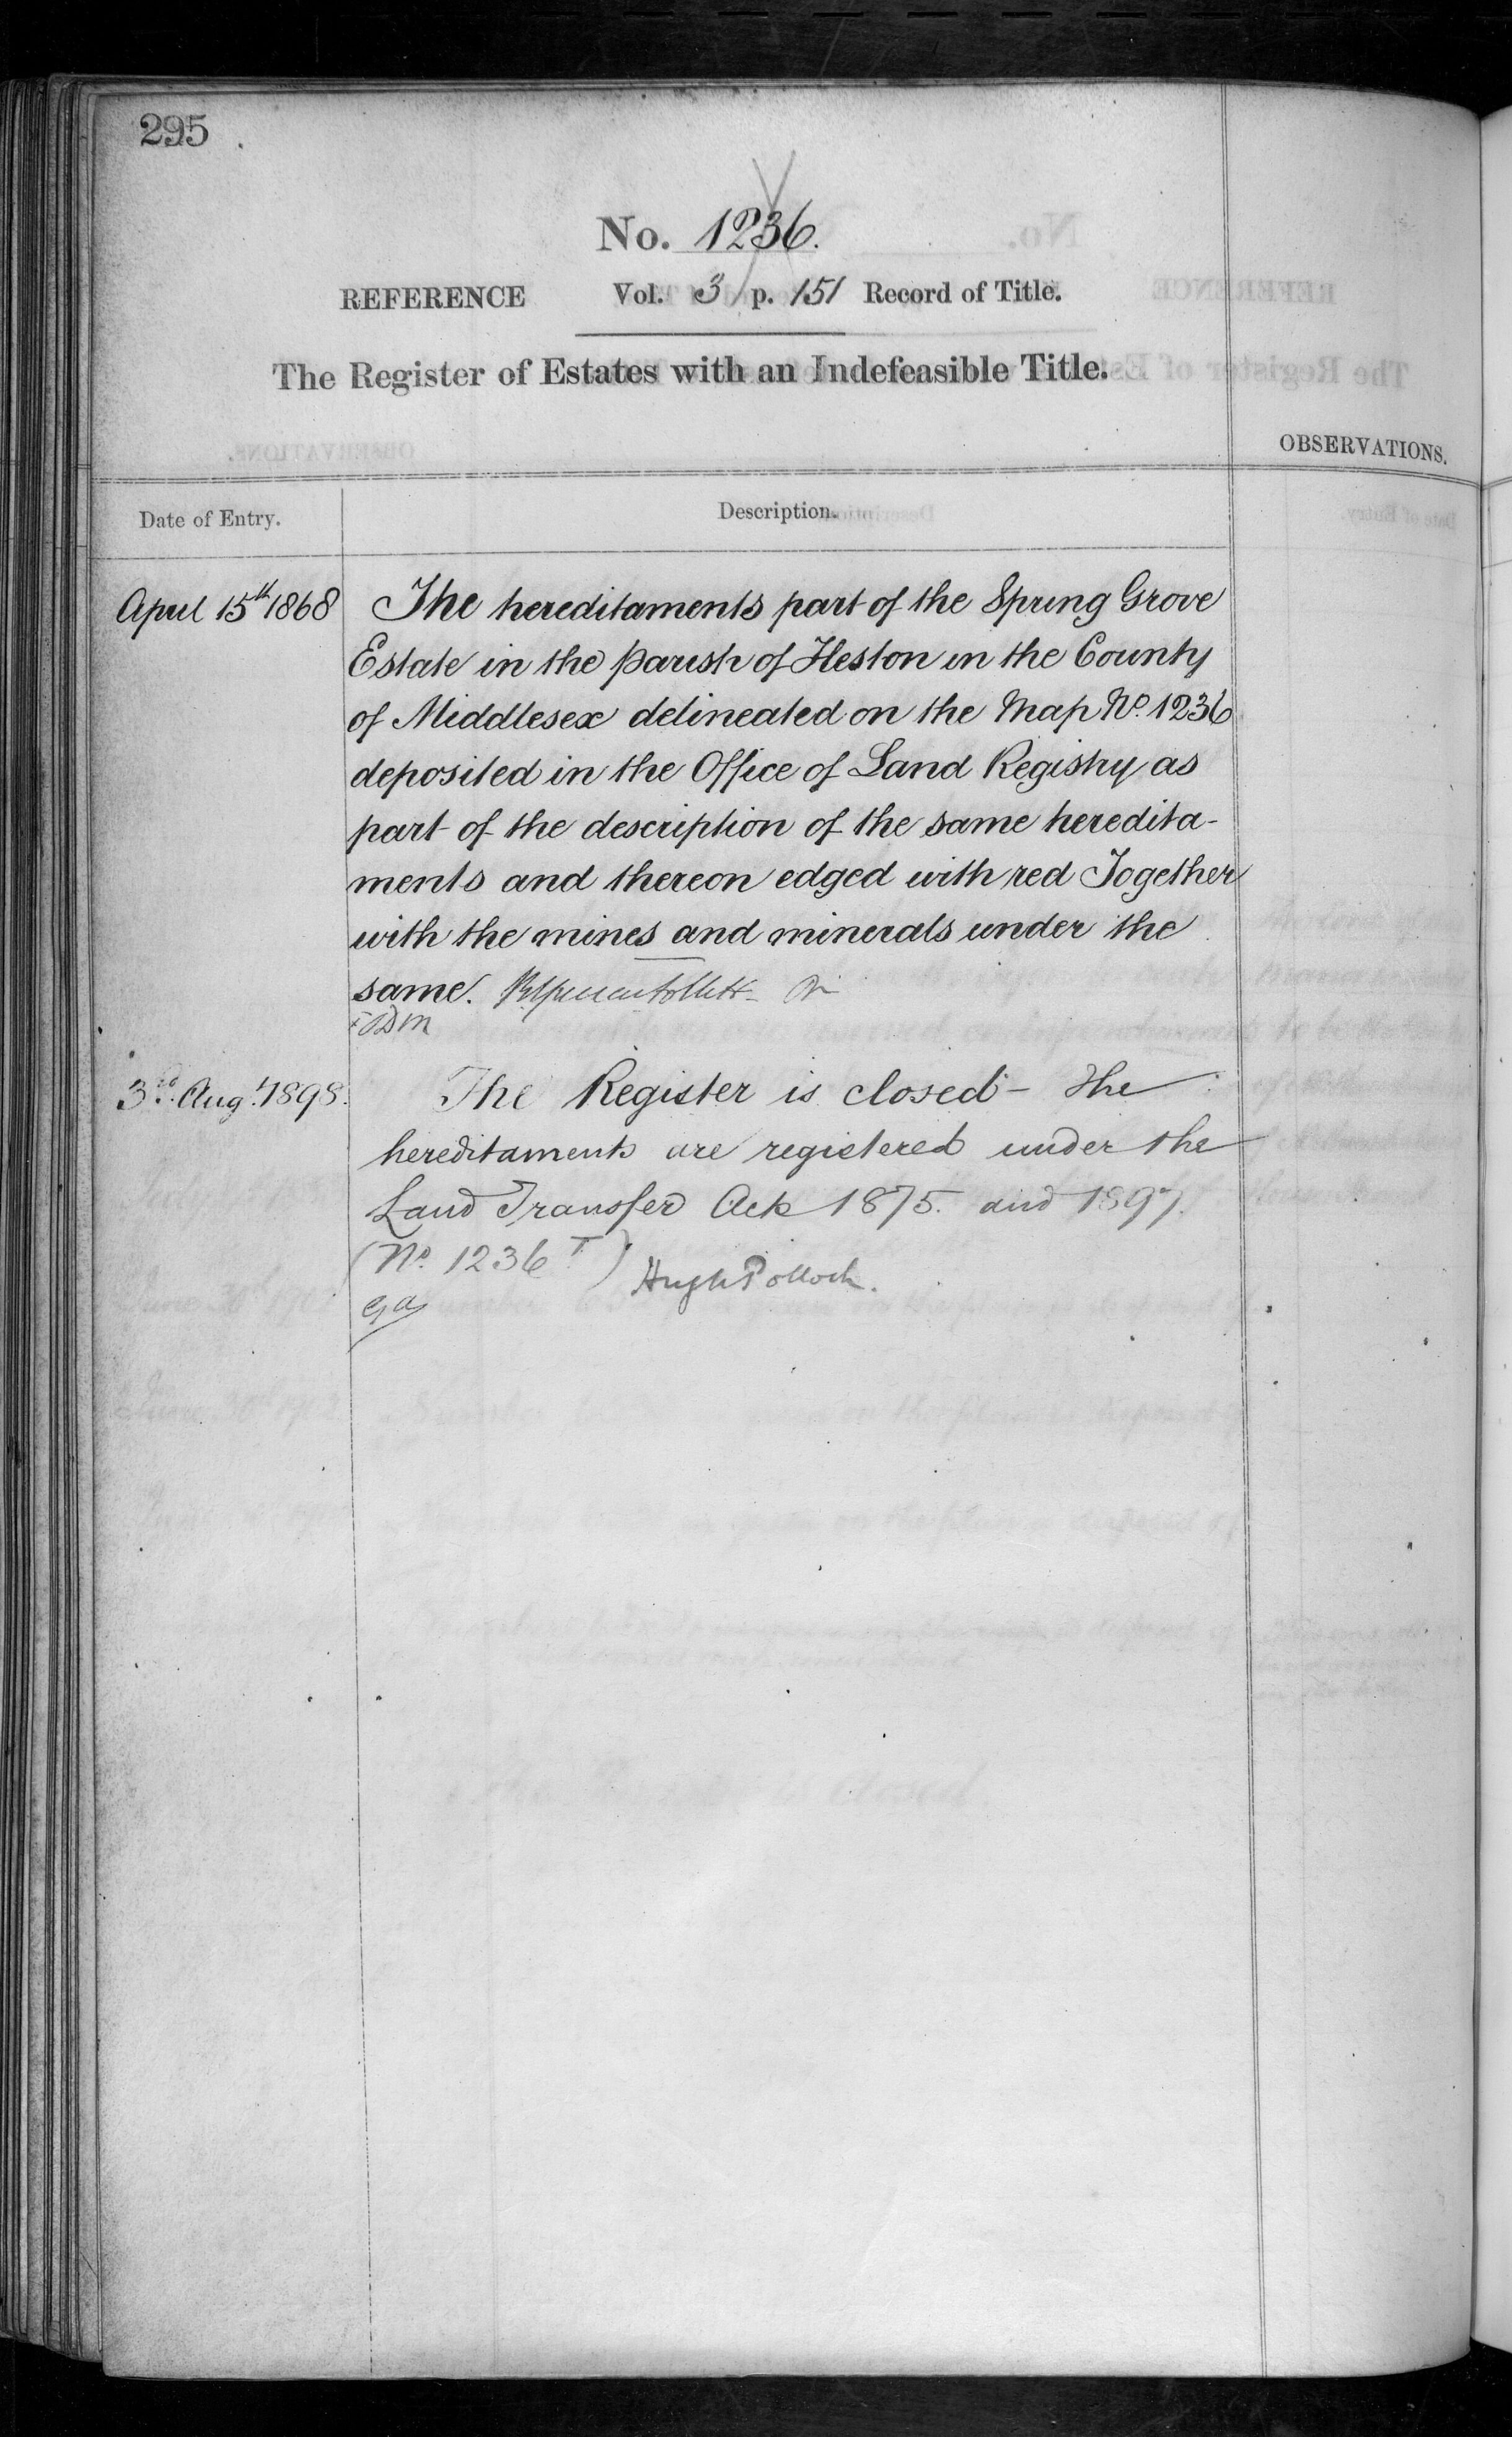 295
No. 1236.
REFERENCE Vol. 3 p. 151 Record of Title.
The Register of Estates with an Indefeasible Title.
OBSERVATIONS.
Date of Entry.
Description.
April 15th 1868
The hereditaments part of the Spring Grove
Estate in the parish of Heston in the County
of Middlesex delineated on the Map No. 1236
deposited in the Office of Land Registry as
part of the description of the same heredita-
ments and thereon edged with red Together
with the mines and minerals under the
same.
3rd. Augt. 1898.
The Register is closed - The
hereditaments are registered under the
Land Transfer Acts 1875. and 1897.
(No. 1236 T)
Hugh Pollock.